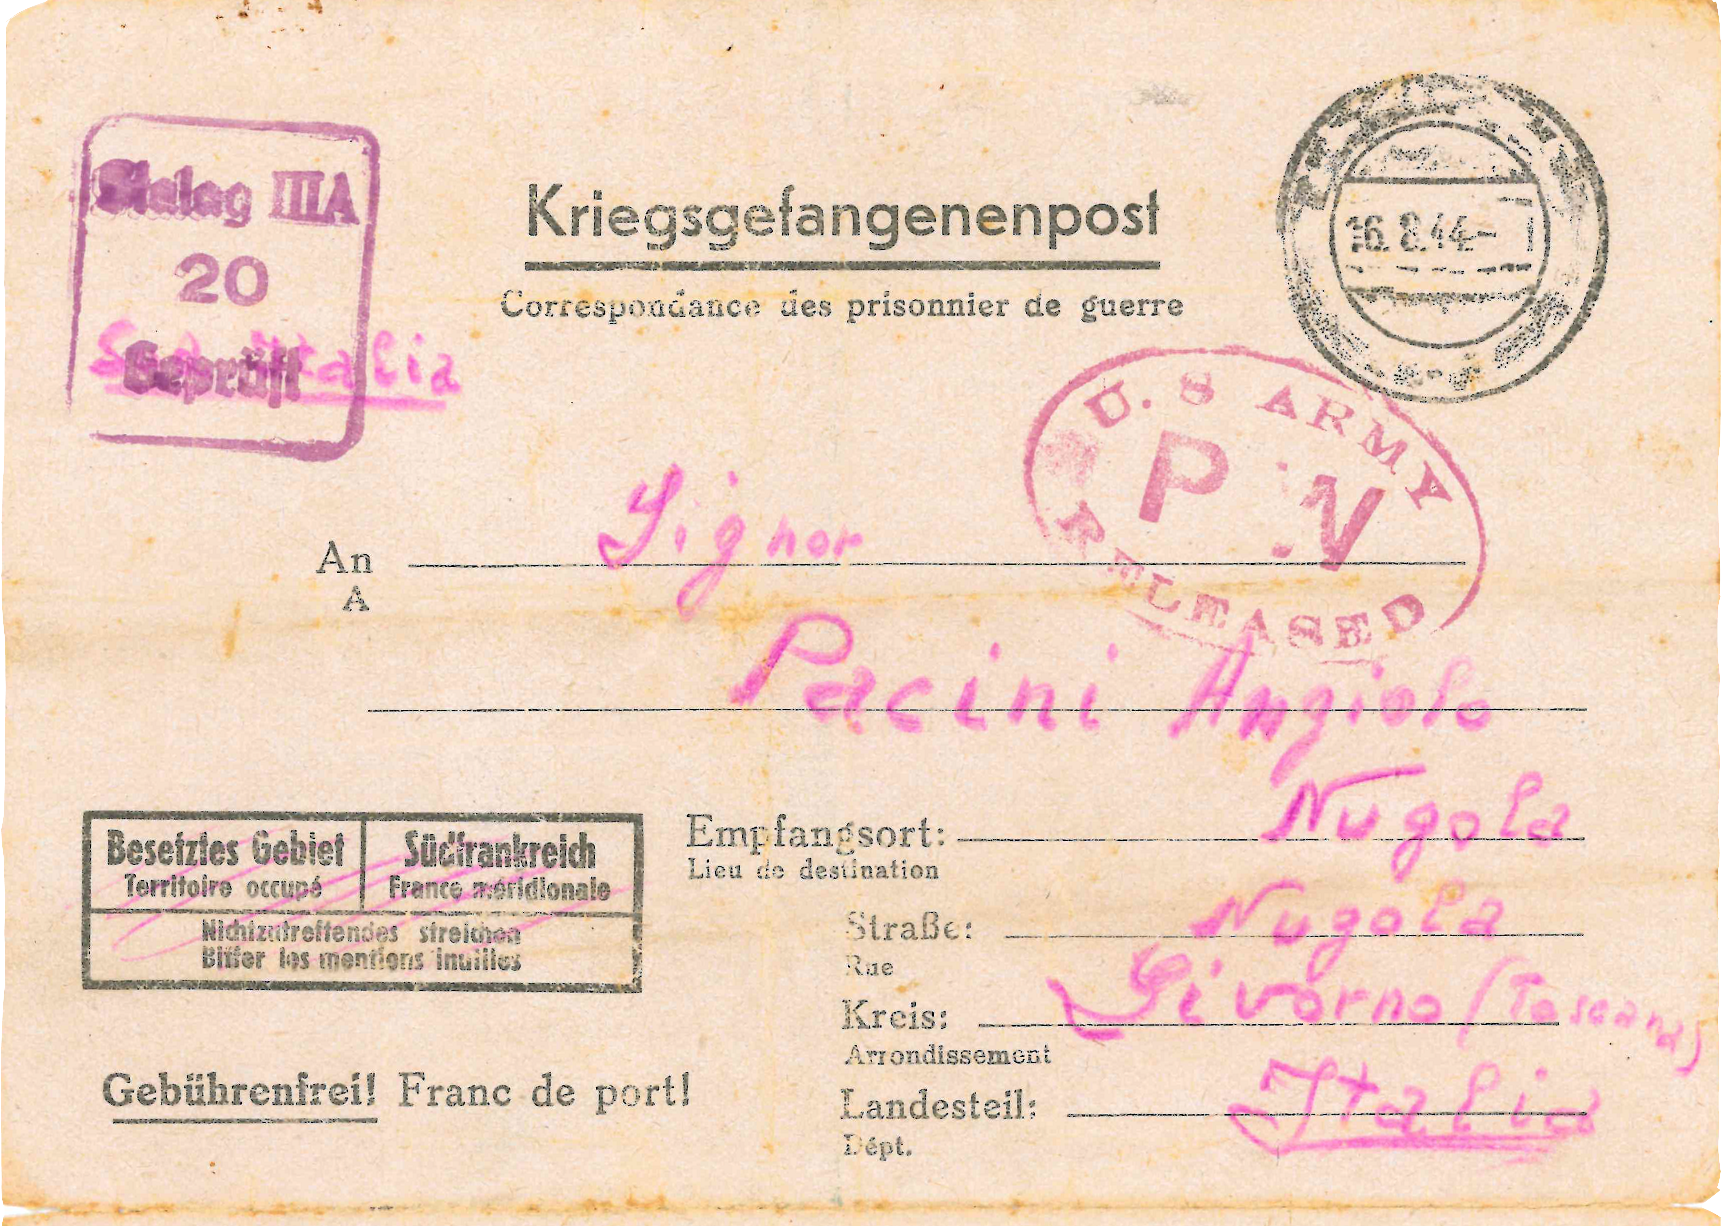 Stalag IIIA
20
Geprüft
Italia
Kriegsgefangenenpost
Correspondance des prisonnier de guerre
16.8.44
U. S ARMY
P W
RELEASED
An Signor
A
Pacini Angiolo
Besetztes Gebiet
Territoire occupé
Südfrankreich
France méridionale
Nichtzutreffendes streichen
Biffer les mentions inutiles
Empfangsort: Nugola
Lieu de destination
Straße: Nugola
Rue
Kreis: Livorno (Toscana)
Arrondissement
Landesteil: Italia
Dépt.
Gebührenfrei! Franc de port!